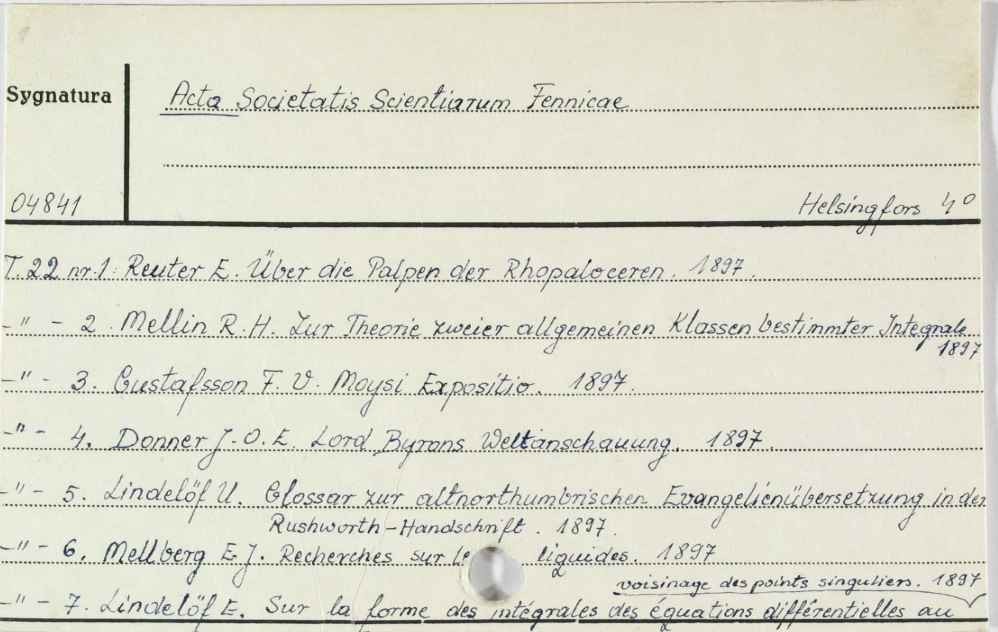 Sygnatura
Acta Societatis Scientiarum Fennicae
04841
Helsingfors 4°
T. 22 nr. 1. Reuter E. Über die Palpen der Rhopaloceren. 1897.
-"- 2. Mellin R. H. Zur Theorie zweier allgemeinen Klassen bestimmter Integrale
1897
-"- 3. Gustafsson F. V. Moysi Expositio. 1897.
-"- 4. Donner J. O. E. Lord Byrons Weltanschauung. 1897.
-"- 5. Lindelöf U. Glossar zur altnorthumbrischen Evangelienübersetzung in der
Rushworth-Handschrift. 1897.
-"- 6. Mellberg E. J. Recherches sur liquides. 1897
voisinage des points singuliers. 1897
-"- 7. Lindelöf E. Sur la forme des intégrales des équations différentielles au